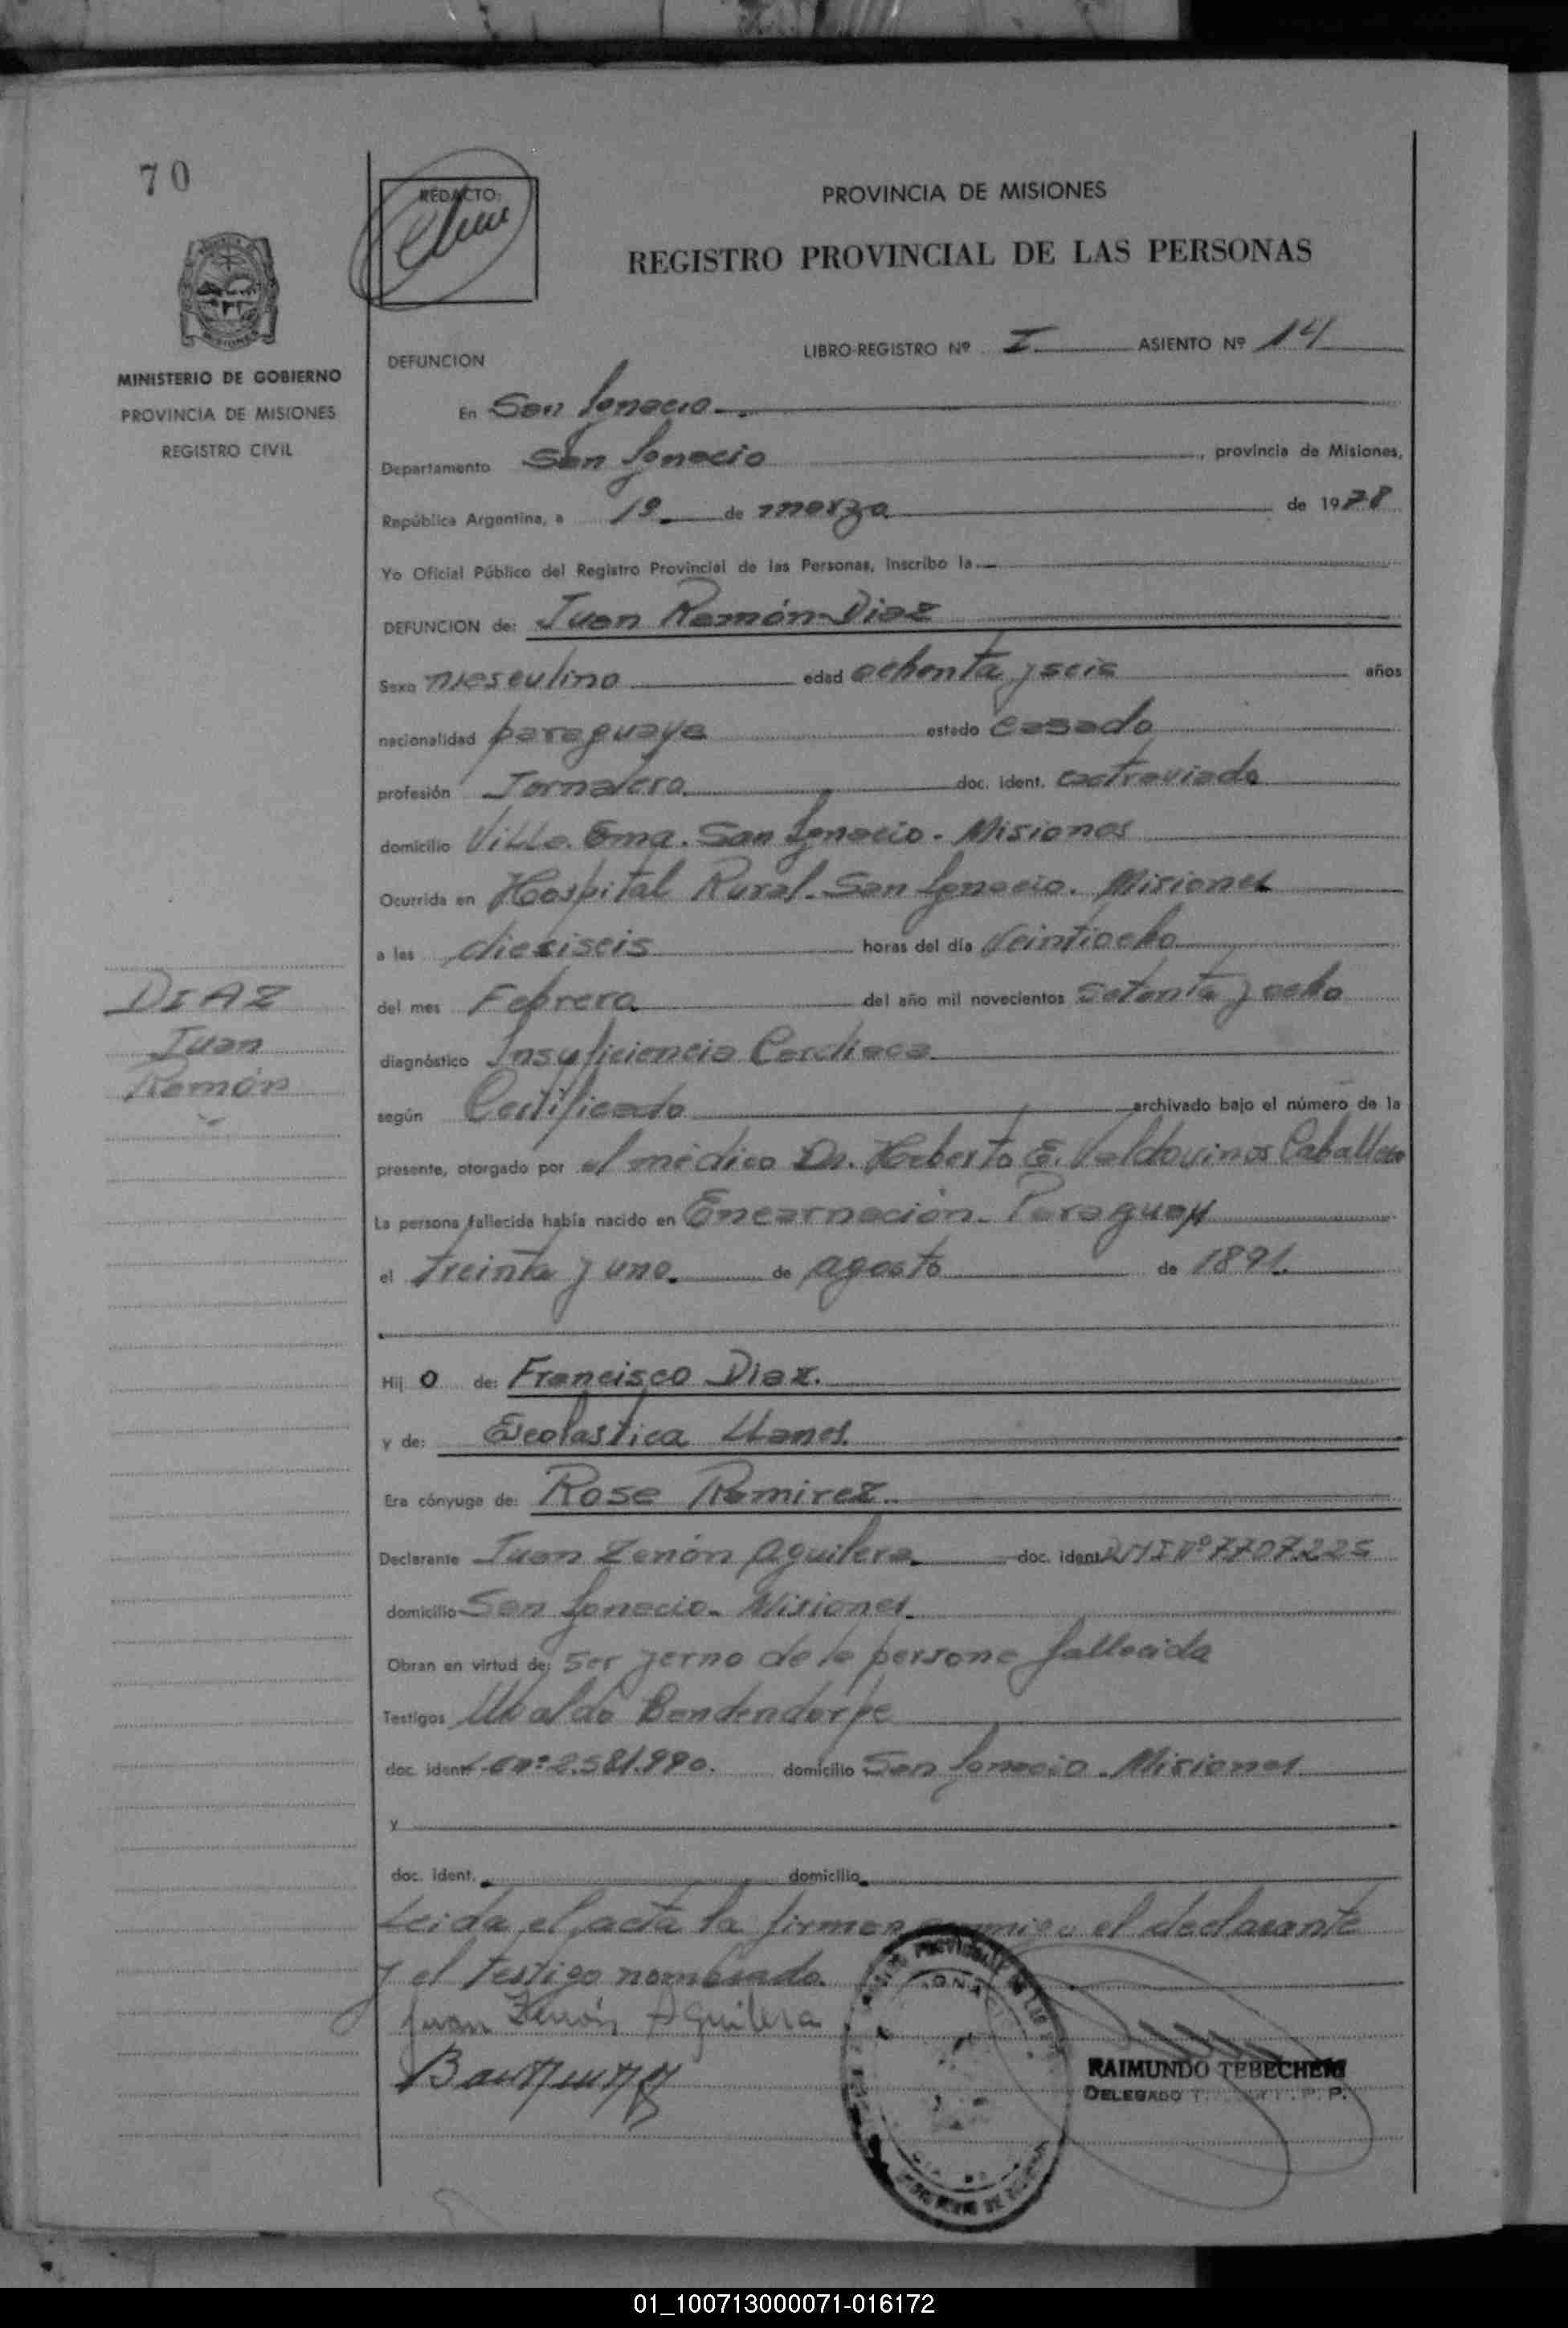 70
REDACTO:
PROVINCIA DE MISIONES
REGISTRO PROVINCIAL DE LAS PERSONAS
MINISTERIO DE GOBIERNO
PROVINCIA DE MISIONES
REGISTRO CIVIL
LIBRO-REGISTRO Nº I ASIENTO Nº 14
DEFUNCION
En San Ignacio
Departamento San Ignacio, provincia de Misiones,
República Argentina, a 1º de marzo de 1978
Yo Oficial Público del Registro Provincial de las Personas, inscribo la
DEFUNCION de: Juan Ramón Diaz
Sexo masculino edad ochenta y seis años
nacionalidad paraguaya estado casado
profesión Jornalero doc. ident. extraviado
domicilio Villa Ema. San Ignacio - Misiones
Ocurrida en Hospital Rural. San Ignacio. Misiones
a las dieciseis horas del día Veintiocho
del mes Febrero del año mil novecientos setenta y ocho
diagnóstico Insuficiencia Cardiaca
según Certificado archivado bajo el número de la
presente, otorgado por el médico Dr. Heberto E. Valdovinos Caballero
La persona fallecida había nacido en Encarnación - Paraguay
el treinta y uno. de agosto de 1891.
DIAZ
Juan
Ramón
Hij o de: Francisco Diaz.
y de: Escolastica Llanes.
Era cónyuge de: Rosa Ramirez.
Declarante Juan Zenón Aguilera doc. ident. DMI Nº 7707225
domicilio San Ignacio - Misiones.
Obran en virtud de: ser yerno de la persona fallecida
Testigos Ubaldo Bondendorpe
doc. ident. L.E Nº: 2.581.990. domicilio San Ignacio - Misiones
y
doc. ident. domicilio
Leida el acta la firman conmigo el declarante
y el testigo nombrado.
Juan Zenón Aguilera
RAIMUNDO TEBECHERI
DELEGADO
01_100713000071-016172